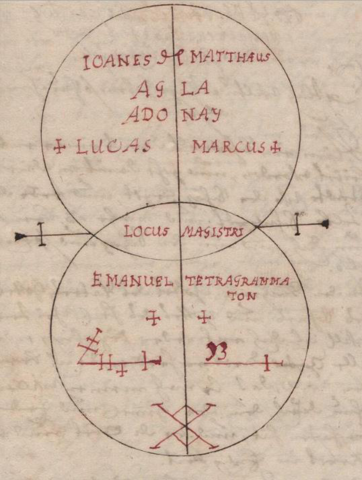 IOANES MATTHAUS
AG LA
ADO NAY
LUCAS MARCUS
LOCUS MAGISTRI
EMANUEL TETRAGRAMMA
TON